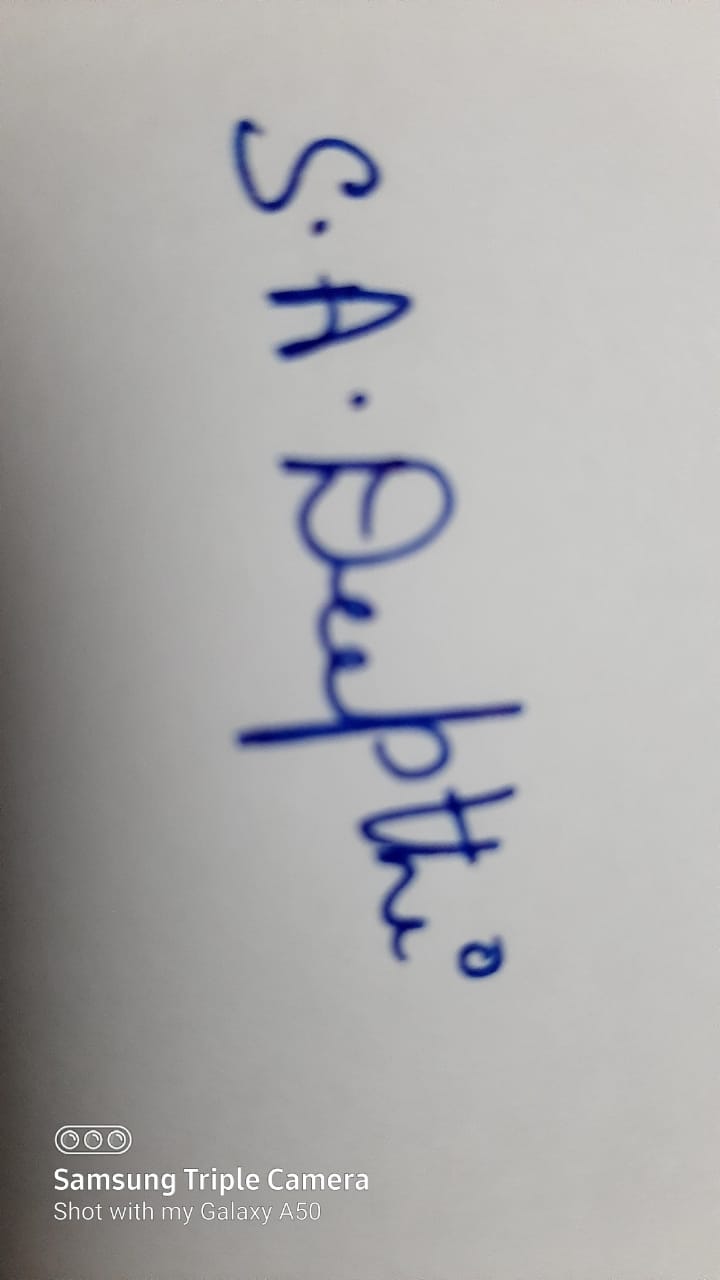 S. A. Deepthi
Samsung Triple Camera
Shot with my Galaxy A50